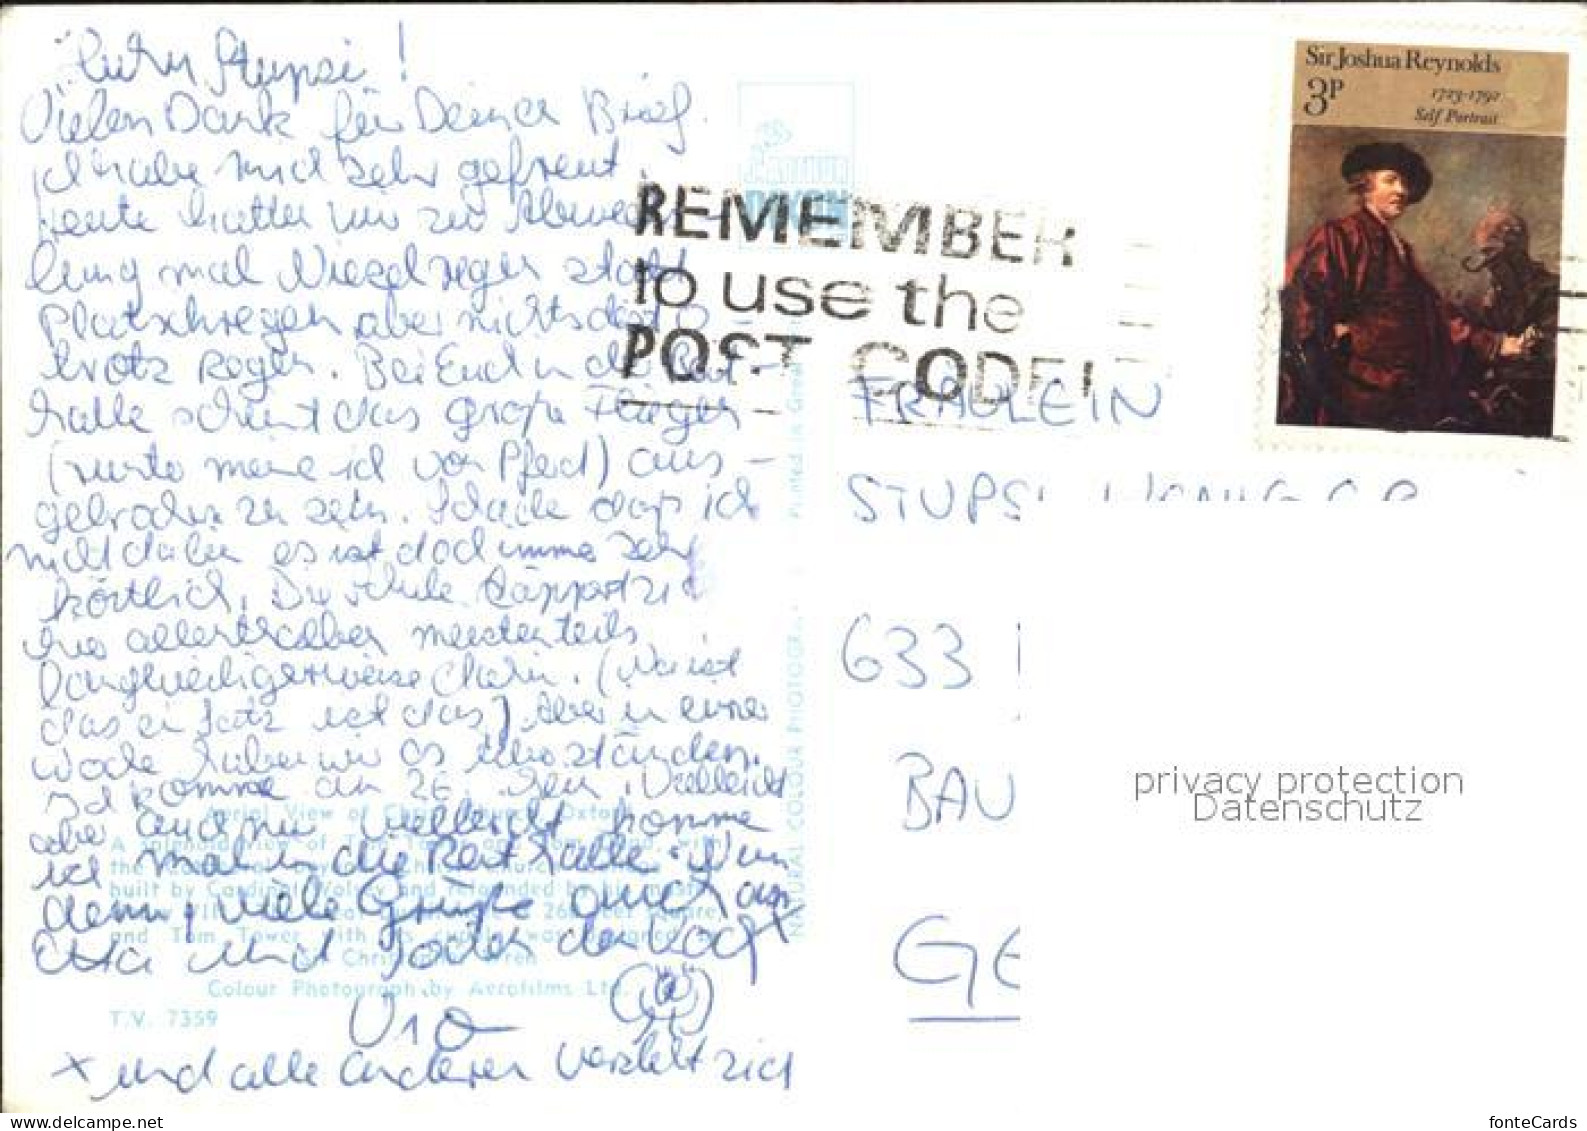 Stupsi!
Vielen Dank für Deinen Brief.
ich habe mich sehr gefreut.
heute hatten wir zur Abwechs-
lung mal Nieselregen statt
Platschregen aber nichtsdesto-
trotz Regen. Bei Euch in der Reit-
halle scheint das große Fliegen
(runter meine ich vom Pferd) aus-
gebrochen zu sein. Schade daß ich
nicht dabei es ist doch immer sehr
köstlich. Die Schule läppert sich
hier allerth aber meistenteils
langweiligerweise dahin. (Na ist
das ein Satz ist das) Aber in einer
Woche haben wir es überstanden.
Ich komme am 26. Vielleicht
aber auch nur vielleicht komme
ich mal in die Reithalle. Nun
denn, viele Grüße auch an
und
x und alle anderen versteht sich
Aerial View of Christ Church, Oxford
A splendid view of Tom Tower
built by Cardinal Wolsey and refounded by his master
and Tom Tower with its cupola was designed by
Sir Christopher Wren
Colour Photograph by Aerofilms Ltd.
T.V. 7359
NATURAL COLOUR PHOTOGR
Printed in Great
REMEMBER
to use the
POST CODE!
Sir Joshua Reynolds
3P
1723-1792
Self Portrait
FRÄULEIN
STUPSI
633
BAU
GE
privacy protection
Datenschutz
fonteCards